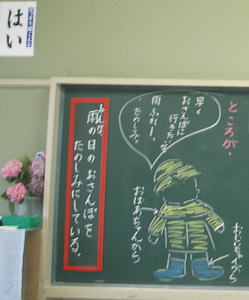 はい
ところが、
早く
おさんぽに
行きたいな
雨ふれー。
たのしみ。
おじいちゃんから
おばあちゃんから
みんな、
雨の日のおさんぽを
たのしみにしている。